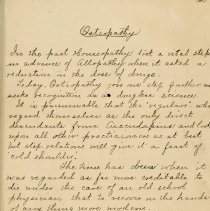 Osteopathy
In the past Homeopathy took a vital step
in advance of Allopathy when it asked a
reduction in the dose of drugs.
Today Osteopathy goes one step further and
seeks recognition as a drugless science.
It is presumable that the "regulars" who
regard themselves as the only direct
descendants from Aesculapius and look
upon all other practitioners as at best
but step relations will give it a feast of
cold shoulder.
The time has been when it
was regarded as far more creditable to
die under the care of an old school
physician than to recover in the hands
of any thing more modern.